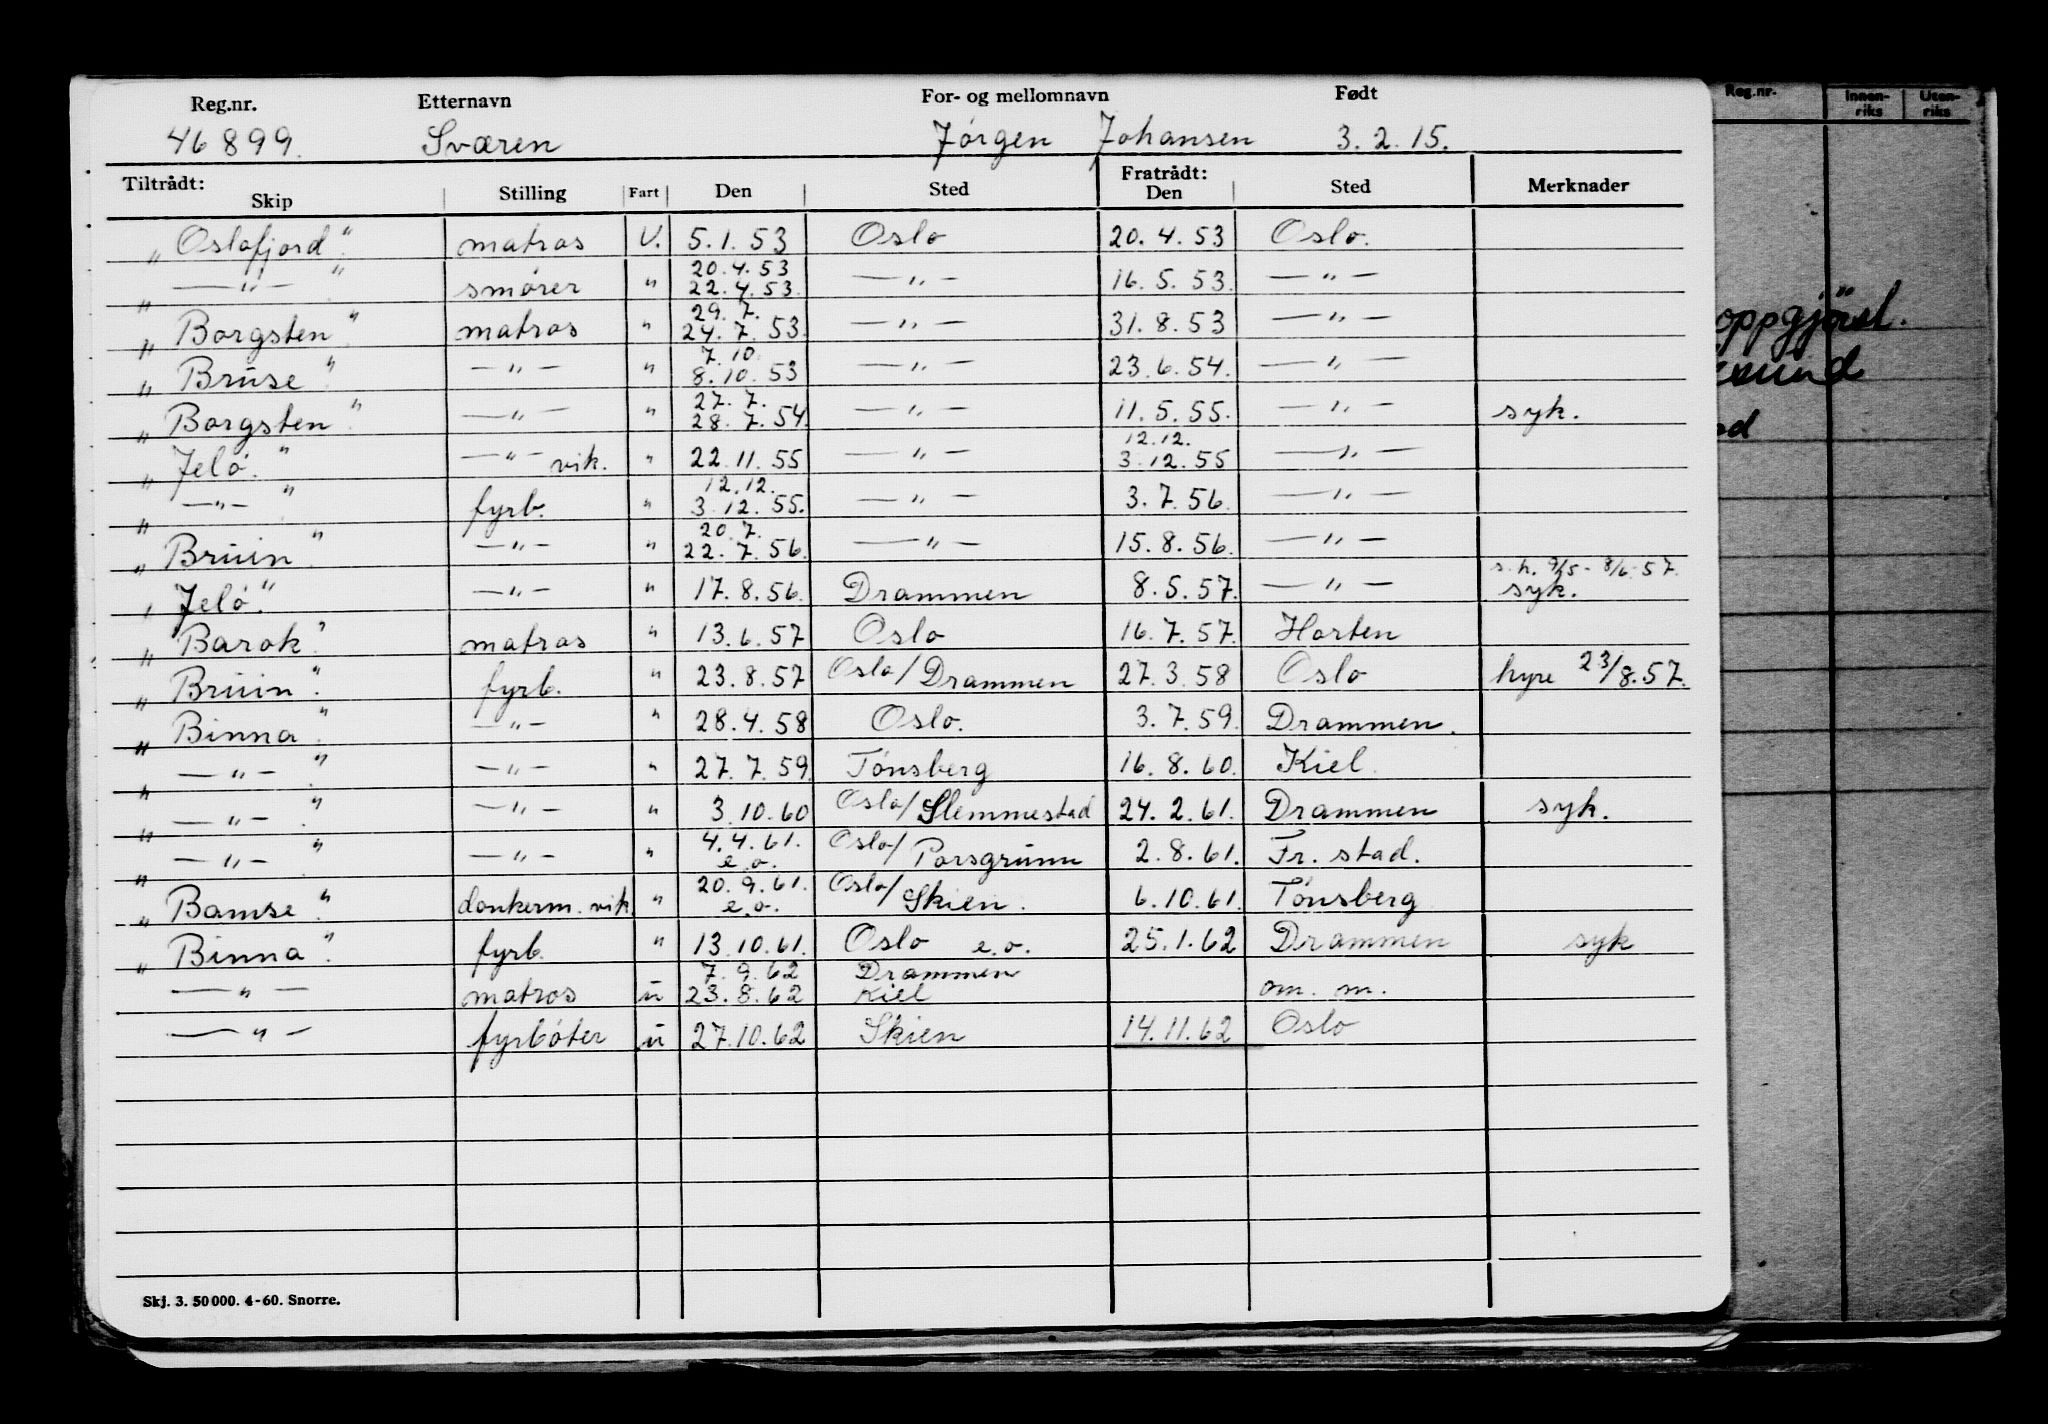 Reg.nr. Etternavn For- og mellomnavn Født
46899. Sværen Jørgen Johansen 3.2.15.
Tiltrådt: Skip Stilling Fart Den Sted Fratrådt: Den Sted Merknader
„Oslofjord" matros U. 5.1.53 Oslo 20.4.53 Oslo.
„ —„— " smører " 20.4.53 22.4.53. —„— 16.5.53. —„—
„Borgsten" matros " 29.7. 24.7.53. —„— 31.8.53 —„—
„Bruse" —„— " 7.10. 8.10.53 —„— 23.6.54. —„—
„Borgsten" —„— " 27.7. 28.7.54. —„— 11.5.55. —„— syk.
„Jelø." —„— vik. " 22.11.55 —„— 12.12. 3.12.55 —„—
„ —„— " fyrb. " 12.12. 3.12.55. —„— 3.7.56. —„—
„Bruin" —„— " 20.7. 22.7.56. —„— 15.8.56. —„—
„Jelø." —„— " 17.8.56. Drammen 8.5.57. —„— s.h. 9/5-8/6-57. syk.
„Barok" matros " 13.6.57 Oslo 16.7.57. Horten
„Bruin" fyrb. " 23.8.57 Oslo/Drammen 27.3.58 Oslo hyre 23/8.57.
„Binna" —„— " 28.4.58 Oslo. 3.7.59. Drammen.
„ —„— " —„— " 27.7.59. Tønsberg 16.8.60. Kiel.
„ —„— " —„— " 3.10.60 Oslo/Slemmestad 24.2.61. Drammen syk.
„ —„— " —„— " 4.4.61. e.o. Oslo/Porsgrunn 2.8.61. Fr.stad.
„Bamse" donkerm. vik. " 20.9.61. e.o. Oslo/Skien. 6.10.61. Tønsberg
„Binna" fyrb. " 13.10.61. Oslo e.o. 25.1.62 Drammen syk
—„— matros u 7.9.62 23.8.62 Drammen Kiel om. m.
—„— fyrbøter u 27.10.62 Skien 14.11.62 Oslo
Skj. 3. 50000. 4-60. Snorre.
Reg.nr. Innen-riks Uten-riks
oppgjørst.